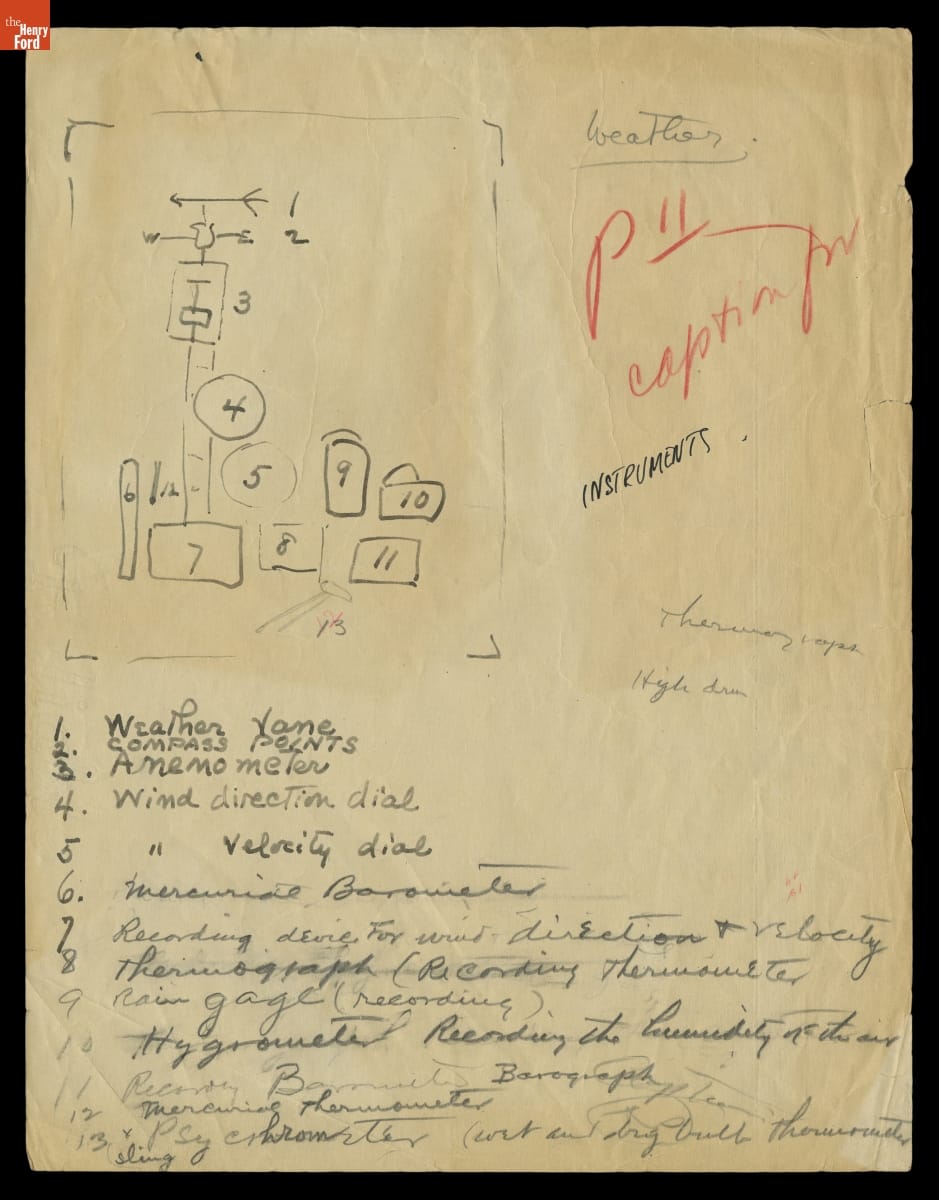 the
Henry
Ford
Weather.
P 11 — for
caption
INSTRUMENTS.
1
W E 2
3
4
5
6
12
7
8
9
10
11
13
Thermograph
High
1. Weather Vane
2. COMPASS POINTS
3. Anemometer
4. Wind direction dial
5 " Velocity dial
6. Mercurial Barometer
7 Recording device For wind direction + velocity
8 Thermograph (Recording Thermometer
9 Rain gage (recording)
10 Hygrometer Recording the humidity of the air
11 Recording Barometer Barograph
12 Mercurial Thermometer
13 x Psychrometer (wet and dry bulb thermometer
sling